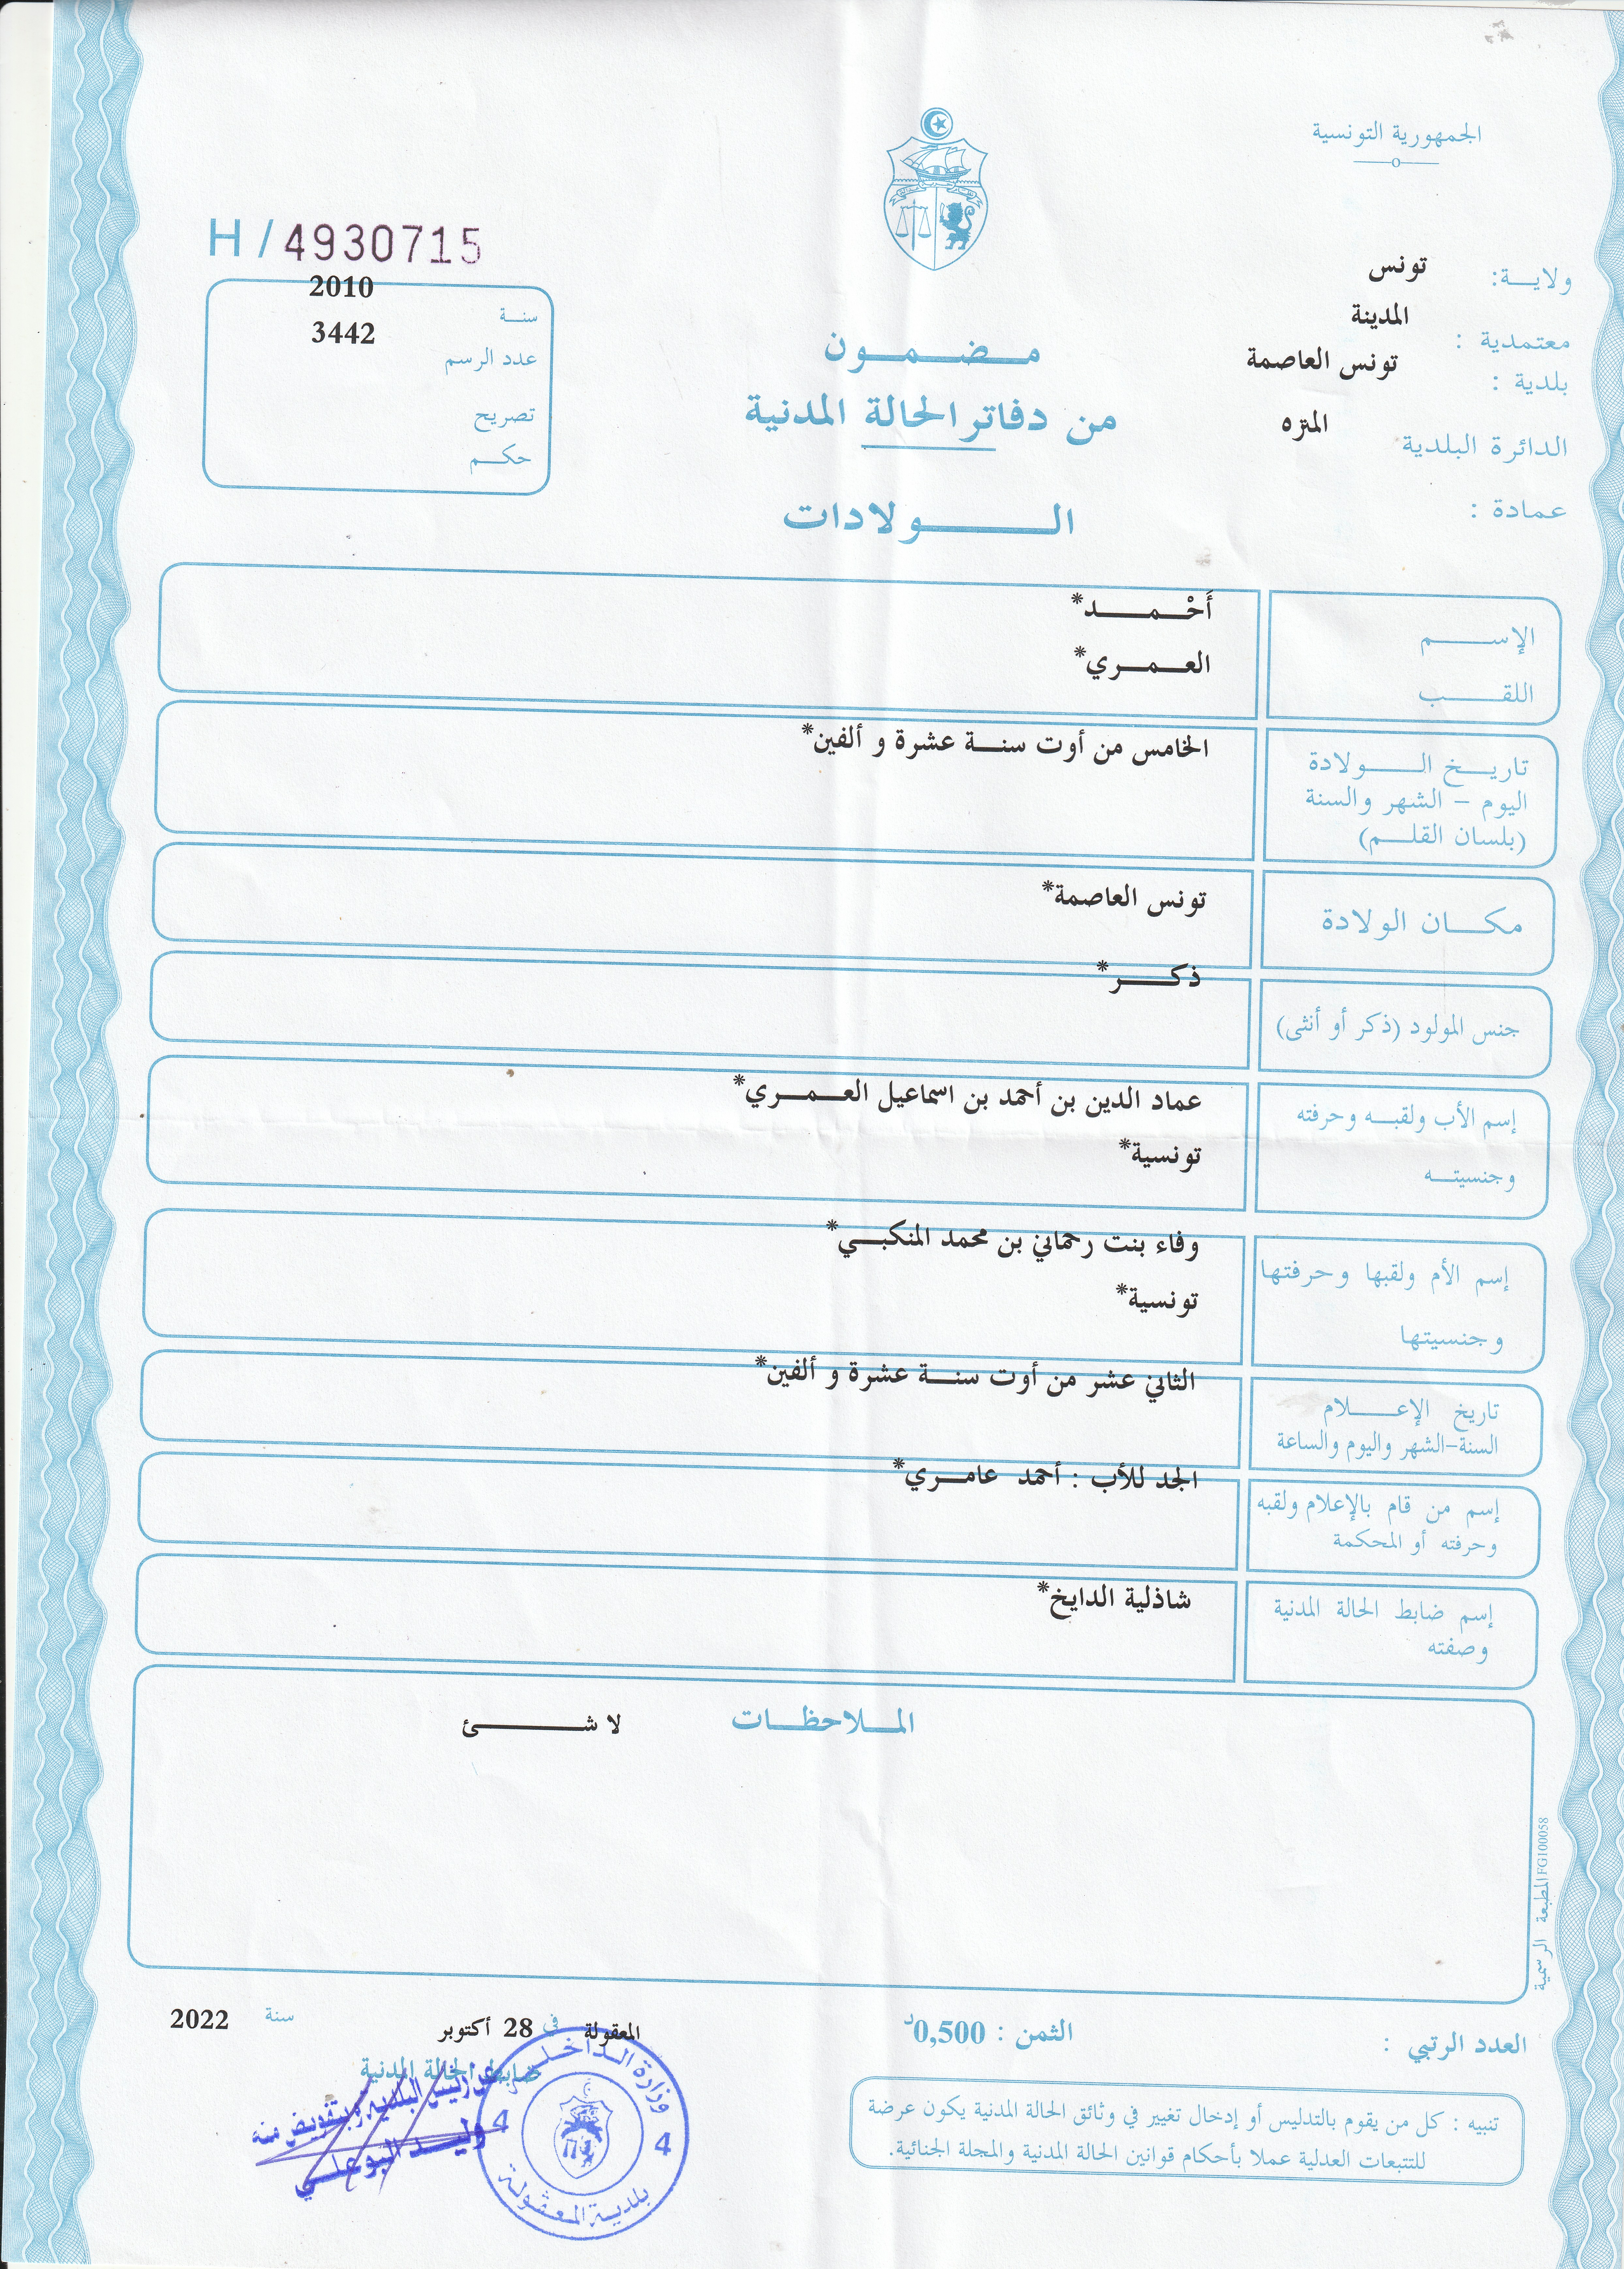 الجمهورية التونسية
H / 4930715
ولايـــة: تونس
معتمدية : المدينة
بلدية : تونس العاصمة
الدائرة البلدية المتره
عمادة :
سنــة 2010
عدد الرسم 3442
تصريح
حكــم
مــضــمــون
من دفاتر الحالة المدنية
الـــــولادات
الإســـــم أَحْـــمـــــد*
اللقـــــب العـــمـــري*
تاريــخ الـــــولادة
اليوم – الشهر والسنة
(بلسان القلــم)
الخامس من أوت سنـــة عشرة و ألفين*
مكـــان الولادة تونس العاصمة*
جنس المولود (ذكر أو أنثى) ذكـــــر*
إسم الأب ولقبــه وحرفته عماد الدين بن أحمد بن اسماعيل العـــمـــري*
وجنسيتــه تونسية*
إسم الأم ولقبها وحرفتها وفاء بنت رحماني بن محمد المنكبـــي*
وجنسيتها تونسية*
تاريخ الإعـــــلام
السنة-الشهر واليوم والساعة
الثاني عشر من أوت سنـــة عشرة و ألفين*
إسم من قام بالإعلام ولقبه
وحرفته أو المحكمة
الجد للأب : أحمد عامـــري*
إسم ضابط الحالة المدنية
وصفته
شاذلية الدايخ*
المــلاحظــات لا شـــــــئ
المطبعة الرسمية FG100058
العدد الرتبي :
الثمن : 0,500د
المعقولة في 28 أكتوبر سنة 2022
ضابط الحالة المدنية
عن رئيس البلدية وبتفويض منه
وليـــد البوعلي
وزارة الداخلية
4 4
بلدية المعقولة
تنبيه : كل من يقوم بالتدليس أو إدخال تغيير في وثائق الحالة المدنية يكون عرضة
للتتبعات العدلية عملا بأحكام قوانين الحالة المدنية والمجلة الجنائية.